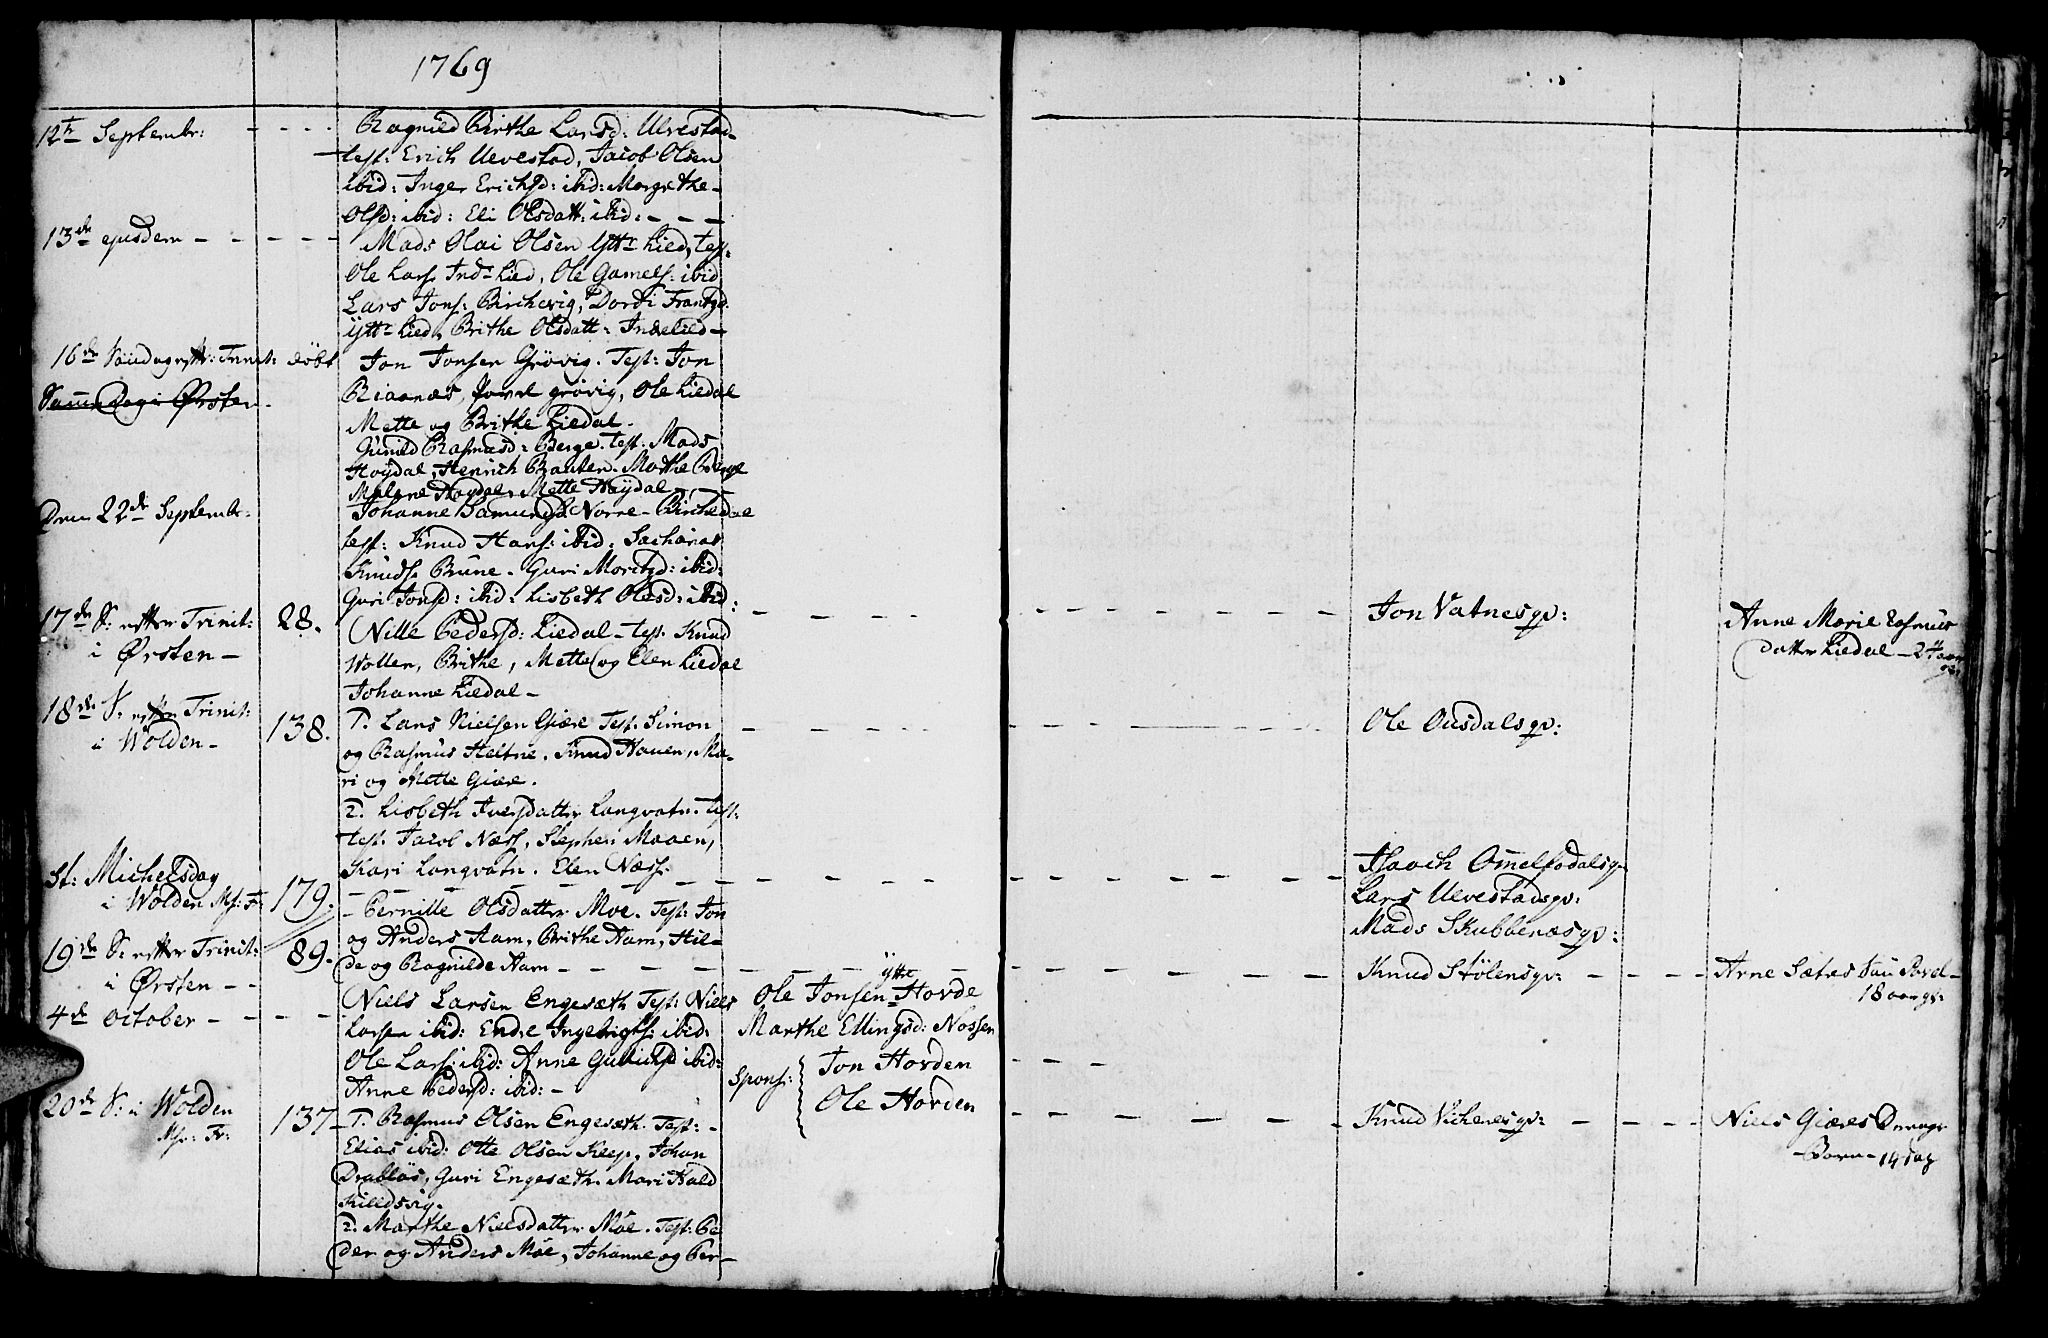 1769
12te Septembr: - - - -
Ragnild Birthe Larsd: Ulvestad
test: Erich Ulvestad, Jacob Olsen
ibid: Inger Erichsd: ibid: Margrethe
Olsd: ibid: Eli Olsdatt: ibid: - - -
13de ejusdem - - - - -
Mads Olai Olsen Ytt: Lied, test:
Ole Lars: Indr Lied, Ole Gamels: ibid
Lars Jons: Birchevig, Dordi Frantzd:
Ytt: Lied, Brithe Olsdatt: Indrelied -
16de Søndag efter: Trinit: døbt
Jon Jonsen Grøvig. Test: Jon
Samme Dag i Ørsten -
Riaanæs, Povel grøvig, Ole Liedal
Mette og Brithe Liedal.
Gunild Rasmusd: Berge. test: Mads
Høydal, Henrich Rauten. Marthe Berge
Malene Høydal, Mette Høydal -
Den 22de Septembr:
Johanne Samundsd: Norre-Birkedal
test: Knud Hans: ibid: Sacharias
Knuds: Brune. Guri Moritzd: ibid:
Guri Jonsd: ibid: Lisbeth Olesd: ibid:
17de S: efter Trinit: 28.
i Ørsten -
Nille Pedersd: Liedal - test: Knud
Wollen, Brithe, Mette og Elen Liedal
Johanne Liedal -
Jon Vatnes gv:
Anne Marie Rasmus
Datter Liedal - 24 aar
18de S: efter Trinit:
i Wolden - 138.
1. Lars Nielsen Giære Test: Simon
og Rasmus Heltne, Knud Hauen, Ma-
ri og Mette Giære.
Ole Ousdals gv:
2. Lisbeth Iversdatter Langvatn. test:
test: Jacob Næss, Stephen Maaen,
Kari Langvatn. Elen Næss.
St: Michelsdag
i Wolden Ms: Fr: 179.
Pernille Olsdatter Moe. Test: Jon
og Anders Aam, Brithe Aam, Hil-
de og Ragnilde Aam - - - -
Isaach Omelfodals gv
Lars Ulvestads gv:
Mads Skubbenæs gv:
19de S: efter Trinit: 89.
i Ørsten - -
Knud Stølens gv: - - - -
Arne Sætres Søn Povel -
18 aar gl:
4de October - - - - -
Niels Larsen Engesæth Test: Niels
Larsen ibid: Endre Ingebrigts: ibid:
Ole Lars: ibid: Anne Gulichsd ibid:
Anne Pedersd: ibid: -
Ytre
Ole Jonsen = Hovde
Marthe Ellingsd: Nossen
Spons: Jon Hovden
Ole Hovden
20de S: i Wolden
Ms: Fr: 137
1. Rasmus Olsen Engesæth. Test: -
Elias ibid: Otte Olsen Klep, Johan
Drabløs, Guri Engesæth. Mari Hald
Killdssig.
2. Marthe Nielsdatter Møe. Test: Pe
der og Anders Møe, Johanne og Per-
Knud Vichenes gv: - - - -
Niels Giæres Drenge
- Barn - 14 dag